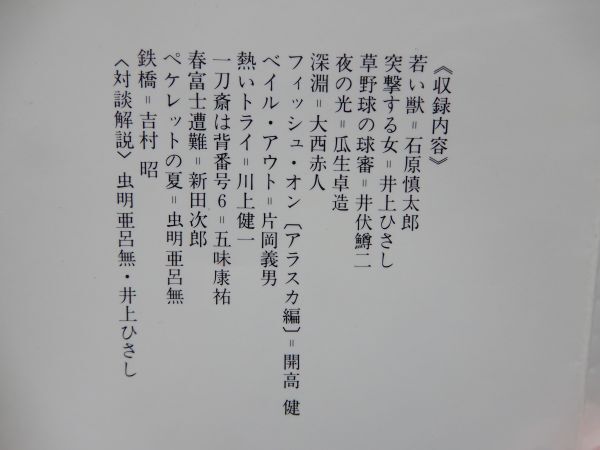 《収録内容》
若い獣＝石原慎太郎
突撃する女＝井上ひさし
草野球の球審＝井伏鱒二
夜の光＝瓜生卓造
深淵＝大西赤人
フィッシュ・オン〔アラスカ編〕＝開高 健
ベイル・アウト＝片岡義男
熱いトライ＝川上健一
一刀斎は背番号6＝五味康祐
春富士遭難＝新田次郎
ペケレットの夏＝虫明亜呂無
鉄橋＝吉村 昭
〈対談解説〉虫明亜呂無・井上ひさし